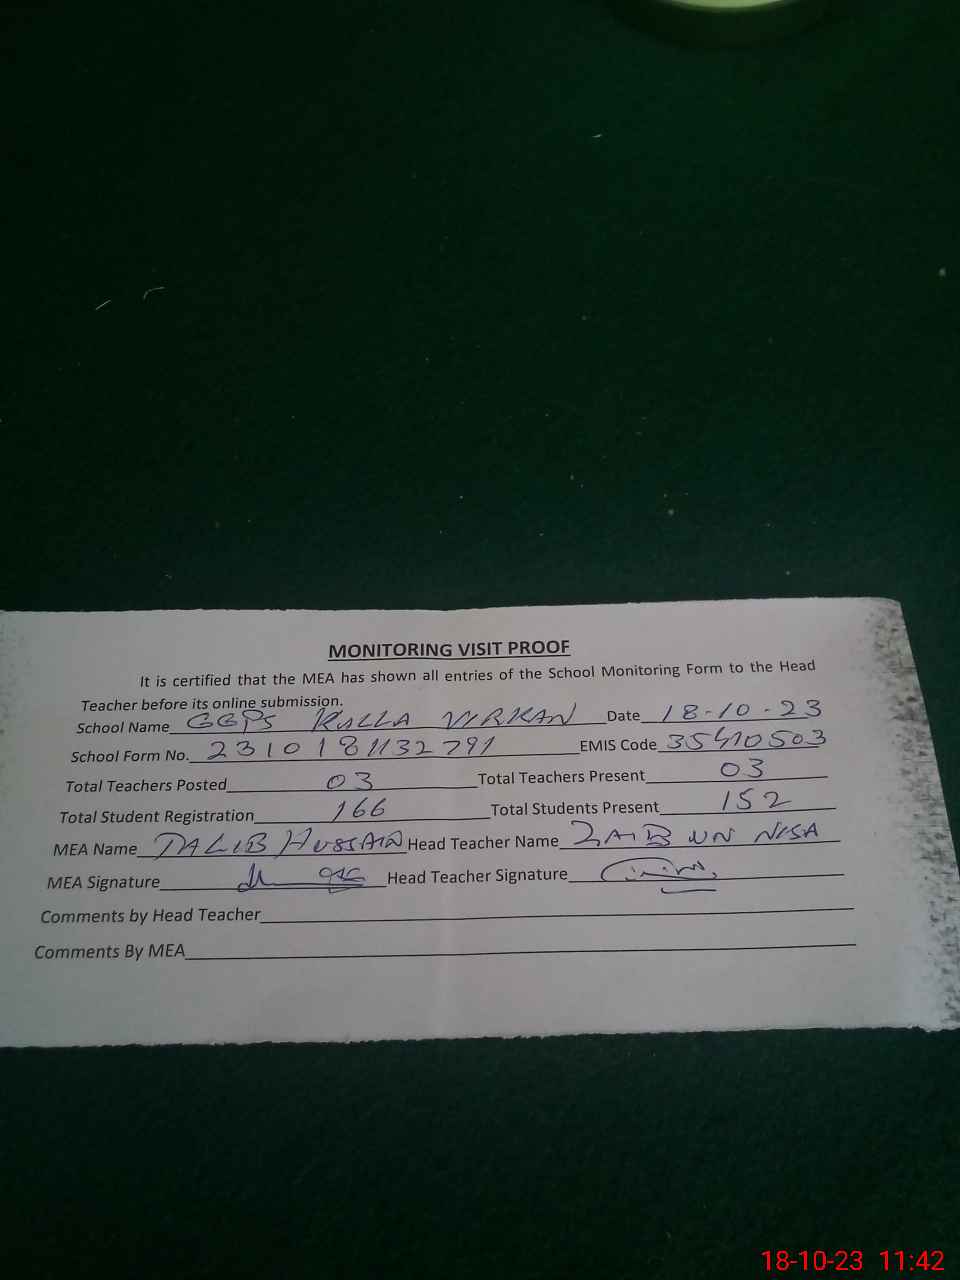 MONITORING VISIT PROOF
It is certified that the MEA has shown all entries of the School Monitoring Form to the Head
Teacher before its online submission.
School Name GGPS RULLA VIRKAN Date 18-10-23
School Form No. 2310181132791 EMIS Code 35410503
Total Teachers Posted 03 Total Teachers Present 03
Total Student Registration 166 Total Students Present 152
MEA Name TALIB HUSSAIN Head Teacher Name ZAIB UN NISA
MEA Signature Head Teacher Signature
Comments by Head Teacher
Comments By MEA
18-10-23 11:42